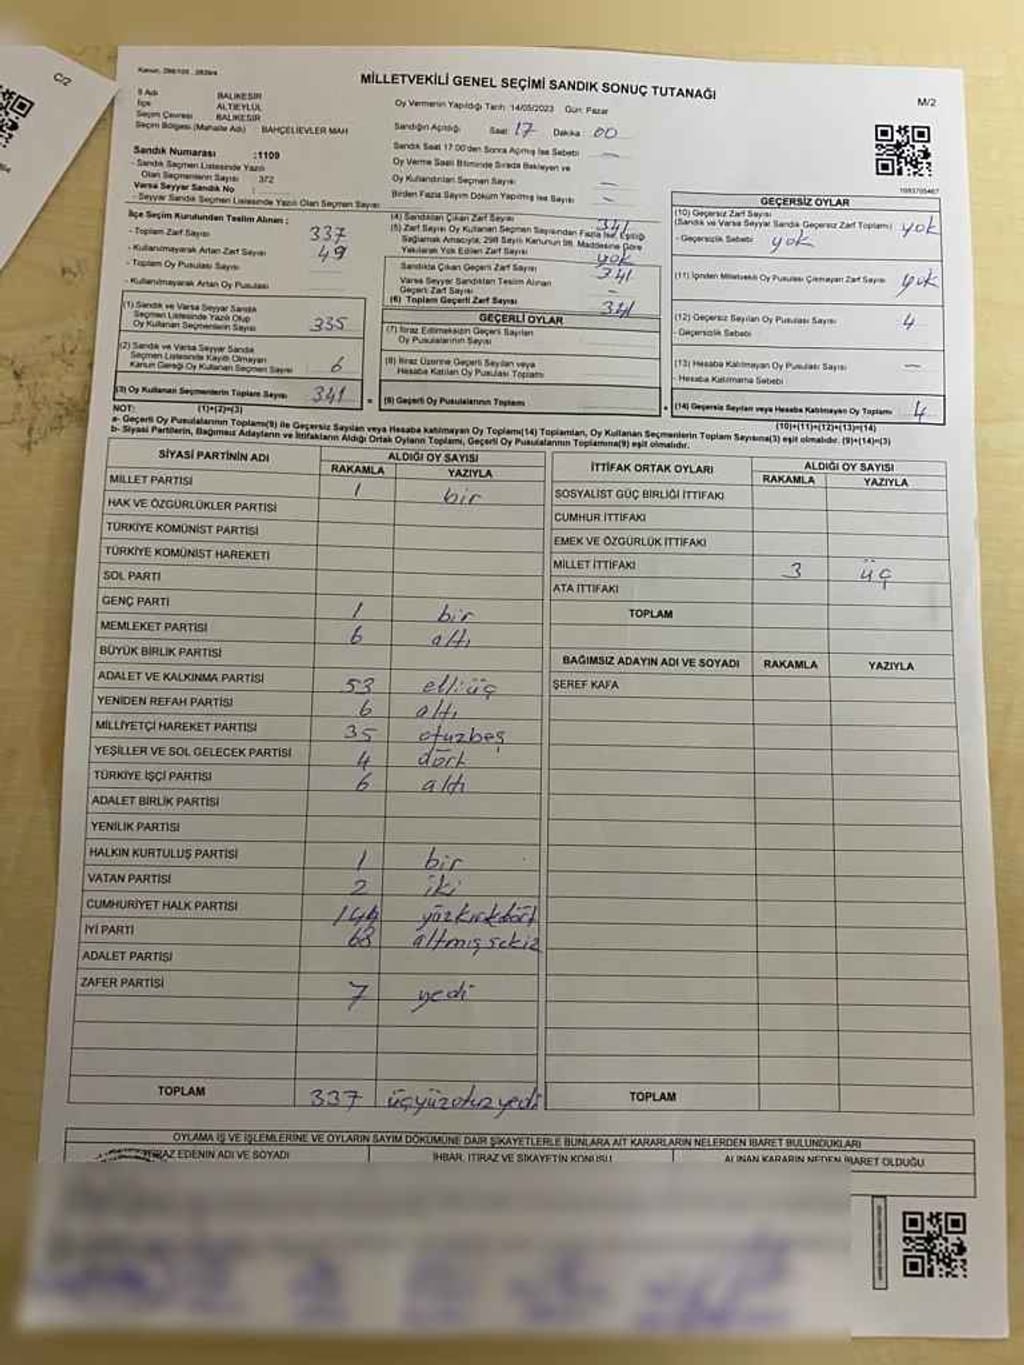 C/2
Kanun, 298/105 , 2839/4
MİLLETVEKİLİ GENEL SEÇİMİ SANDIK SONUÇ TUTANAĞI
M/2
İl Adı BALIKESİR
İlçe ALTIEYLÜL
Seçim Çevresi BALIKESİR
Seçim Bölgesi (Mahalle Adı) BAHÇELİEVLER MAH
Oy Vermenin Yapıldığı Tarih: 14/05/2023 Gün: Pazar
Sandığın Açıldığı Saat 17 Dakika: 00
Sandık Saat 17:00'den Sonra Açılmış İse Sebebi —
Oy Verme Saati Bitiminde Sırada Bekleyen ve
Oy Kullandırılan Seçmen Sayısı —
Birden Fazla Sayım Döküm Yapılmış İse Sayısı —
Sandık Numarası :1109
- Sandık Seçmen Listesinde Yazılı
Olan Seçmenlerin Sayısı 372
Varsa Seyyar Sandık No :
- Seyyar Sandık Seçmen Listesinde Yazılı Olan Seçmen Sayısı
1093705467
İlçe Seçim Kurulundan Teslim Alınan :
- Toplam Zarf Sayısı 337
- Kullanılmayarak Artan Zarf Sayısı 49
- Toplam Oy Pusulası Sayısı
- Kullanılmayarak Artan Oy Pusulası
(1) Sandık ve Varsa Seyyar Sandık
Seçmen Listesinde Yazılı Olup
Oy Kullanan Seçmenlerin Sayısı 335
(2) Sandık ve Varsa Seyyar Sandık
Seçmen Listesinde Kayıtlı Olmayan
Kanun Gereği Oy Kullanan Seçmen Sayısı 6
(3) Oy Kullanan Seçmenlerin Toplam Sayısı 341
(4) Sandıktan Çıkan Zarf Sayısı 341
(5) Zarf Sayısı Oy Kullanan Seçmen Sayısından Fazla İse, Eşitliği
Sağlamak Amacıyla, 298 Sayılı Kanunun 98. Maddesine Göre
Yakılarak Yok Edilen Zarf Sayısı yok
Sandıkta Çıkan Geçerli Zarf Sayısı 341
Varsa Seyyar Sandıktan Teslim Alınan
Geçerli Zarf Sayısı —
(6) Toplam Geçerli Zarf Sayısı 341
GEÇERLİ OYLAR
(7) İtiraz Edilmeksizin Geçerli Sayılan
Oy Pusulalarının Sayısı
(8) İtiraz Üzerine Geçerli Sayılan veya
Hesaba Katılan Oy Pusulası Toplamı
(9) Geçerli Oy Pusulalarının Toplamı
GEÇERSİZ OYLAR
(10) Geçersiz Zarf Sayısı
(Sandık ve Varsa Seyyar Sandık Geçersiz Zarf Toplamı) yok
- Geçersizlik Sebebi yok
(11) İçinden Milletvekili Oy Pusulası Çıkmayan Zarf Sayısı yok
(12) Geçersiz Sayılan Oy Pusulası Sayısı 4
- Geçersizlik Sebebi
(13) Hesaba Katılmayan Oy Pusulası Sayısı —
- Hesaba Katılmama Sebebi
(14) Geçersiz Sayılan veya Hesaba Katılmayan Oy Toplamı 4
NOT: (1)+(2)=(3)
(10)+(11)+(12)+(13)=(14)
a- Geçerli Oy Pusulalarının Toplamı(9) ile Geçersiz Sayılan veya Hesaba katılmayan Oy Toplamı(14) Toplamları, Oy Kullanan Seçmenlerin Toplam Sayısına(3) eşit olmalıdır. (9)+(14)=(3)
b- Siyasi Partilerin, Bağımsız Adayların ve İttifakların Aldığı Ortak Oyların Toplamı, Geçerli Oy Pusulalarının Toplamına(9) eşit olmalıdır.
SİYASİ PARTİNİN ADI ALDIĞI OY SAYISI
RAKAMLA YAZIYLA
MİLLET PARTİSİ 1 bir
HAK VE ÖZGÜRLÜKLER PARTİSİ
TÜRKİYE KOMÜNİST PARTİSİ
TÜRKİYE KOMÜNİST HAREKETİ
SOL PARTİ
GENÇ PARTİ 1 bir
MEMLEKET PARTİSİ 6 altı
BÜYÜK BİRLİK PARTİSİ
ADALET VE KALKINMA PARTİSİ 53 elliüç
YENİDEN REFAH PARTİSİ 6 altı
MİLLİYETÇİ HAREKET PARTİSİ 35 otuzbeş
YEŞİLLER VE SOL GELECEK PARTİSİ 4 dört
TÜRKİYE İŞÇİ PARTİSİ 6 altı
ADALET BİRLİK PARTİSİ
YENİLİK PARTİSİ
HALKIN KURTULUŞ PARTİSİ 1 bir
VATAN PARTİSİ 2 iki
CUMHURİYET HALK PARTİSİ 144 yüzkırkdört
İYİ PARTİ 68 altmışsekiz
ADALET PARTİSİ
ZAFER PARTİSİ 7 yedi
TOPLAM 337 üçyüzotuzyedi
İTTİFAK ORTAK OYLARI ALDIĞI OY SAYISI
RAKAMLA YAZIYLA
SOSYALİST GÜÇ BİRLİĞİ İTTİFAKI
CUMHUR İTTİFAKI
EMEK VE ÖZGÜRLÜK İTTİFAKI
MİLLET İTTİFAKI 3 üç
ATA İTTİFAKI
TOPLAM
BAĞIMSIZ ADAYIN ADI VE SOYADI RAKAMLA YAZIYLA
ŞEREF KAFA
TOPLAM
OYLAMA İŞ VE İŞLEMLERİNE VE OYLARIN SAYIM DÖKÜMÜNE DAİR ŞİKAYETLERLE BUNLARA AİT KARARLARIN NELERDEN İBARET BULUNDUKLARI
İTİRAZ EDENİN ADI VE SOYADI İHBAR, İTİRAZ VE ŞİKAYETİN KONUSU ALINAN KARARIN NEDEN İBARET OLDUĞU